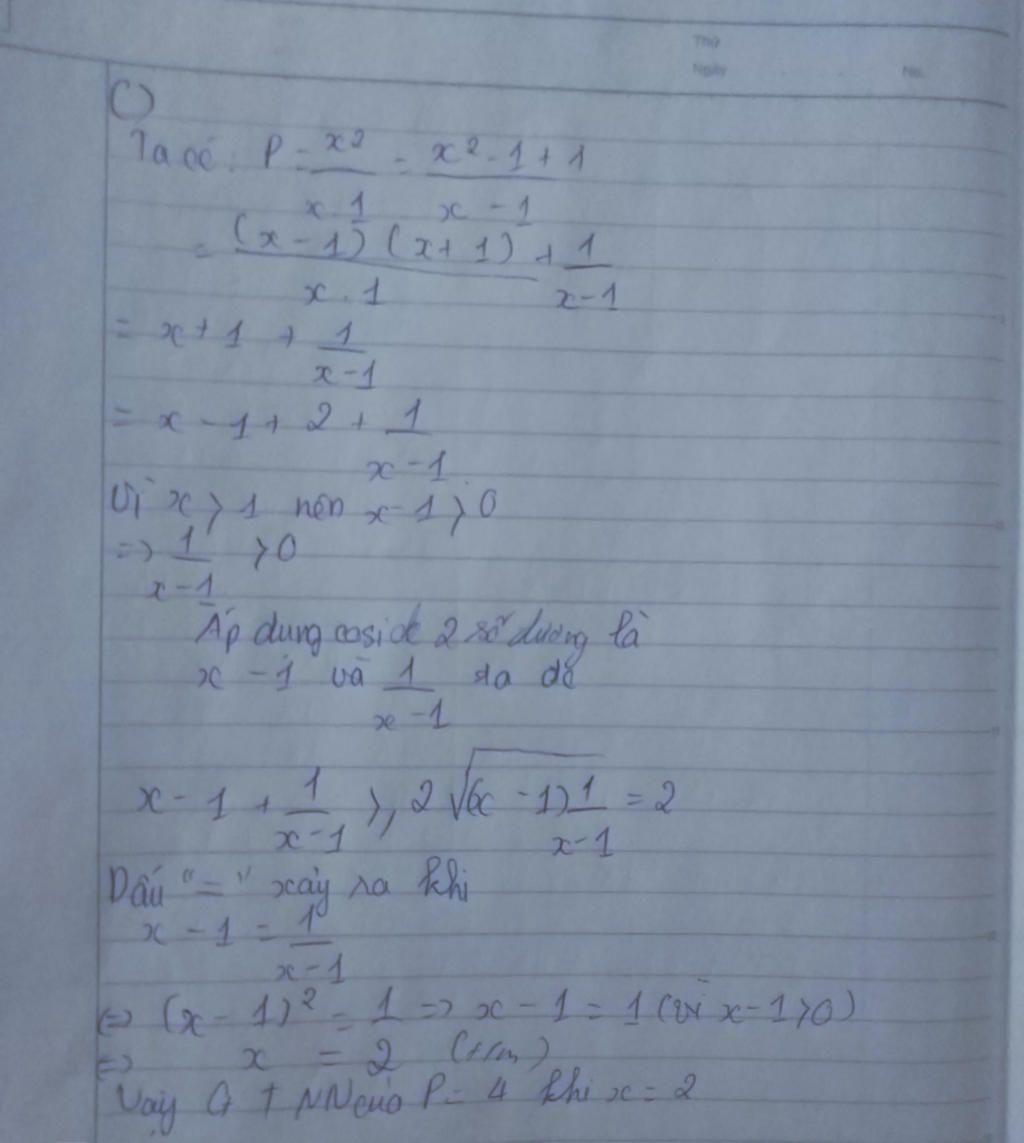 Thứ
Ngày No.
C)
Ta có: P = x²/(x-1) = (x² - 1 + 1)/(x - 1)
= (x - 1)(x + 1)/(x - 1) + 1/(x - 1)
= x + 1 + 1/(x - 1)
= x - 1 + 2 + 1/(x - 1)
Vì x > 1 nên x - 1 > 0
=> 1/(x - 1) > 0
Áp dụng cosi 2 số dương là
x - 1 và 1/(x - 1)
x - 1 + 1/(x - 1) ≥ 2√((x - 1) 1/(x - 1)) = 2
Dấu "=" xảy ra khi
x - 1 = 1/(x - 1)
<=> (x - 1)² = 1 => x - 1 = 1 (vì x - 1 > 0)
=> x = 2 (t/m)
Vậy GTNN của P = 4 khi x = 2